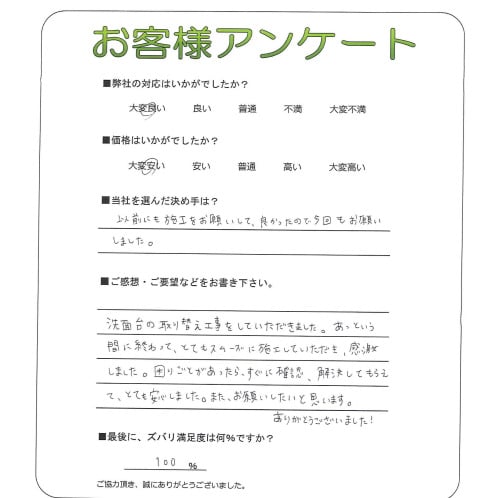 お客様アンケート
■弊社の対応はいかがでしたか？
大変良い 良い 普通 不満 大変不満
■価格はいかがでしたか？
大変安い 安い 普通 高い 大変高い
■当社を選んだ決め手は？
以前にも施工をお願いして、良かったので今回もお願い
しました。
■ご感想・ご要望などをお書き下さい。
洗面台の取り替え工事をしていただきました。あっという
間に終わって、とてもスムーズに施工していただき、感激
しました。困りごとがあったら、すぐに確認、解決してもらえ
て、とても安心しました。また、お願いしたいと思います。
ありがとうございました!
■最後に、ズバリ満足度は何%ですか？
100 %
ご協力頂き、誠にありがとうございました。